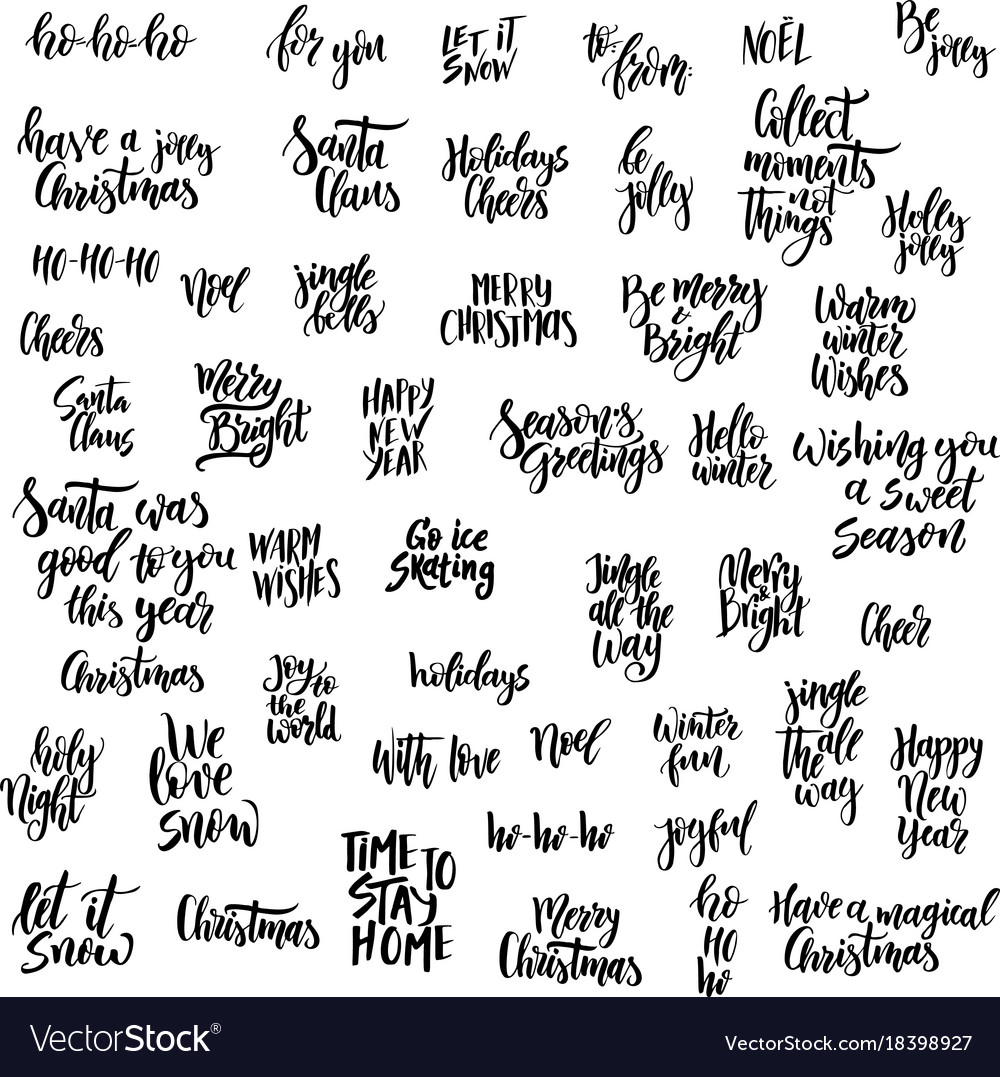 ho-ho-ho
for you
LET iT
SNOW
to:
from:
NOËL
Be
jolly
have a jolly
Christmas
Santa
Claus
Holidays
Cheers
be
jolly
Collect
moments
not
Things
Holly
jolly
HO-HO-HO
Noel
jingle
bells
MERRY
CHRISTMAS
Be merry
&
Bright
Warm
winter
Wishes
Cheers
Santa
Claus
Merry
Bright
HAPPY
NEW
YEAR
Season's
Greetings
Hello
winter
Wishing you
a sweet
Season
Santa was
good to you
this year
WARM
WISHES
Go ice
Skating
Jingle
all the
Way
Merry
&
Bright
Cheer
Christmas
Joy to
the
world
holidays
jingle
all
the
way
holy
Night
We
love
snow
With love
Noel
Winter
fun
Happy
New
Year
ho-ho-ho
joyful
TiME TO
STAY
HOME
let it
Snow
Christmas
Merry
Christmas
ho
HO
ho
Have a magical
Christmas
VectorStock®
VectorStock.com/18398927